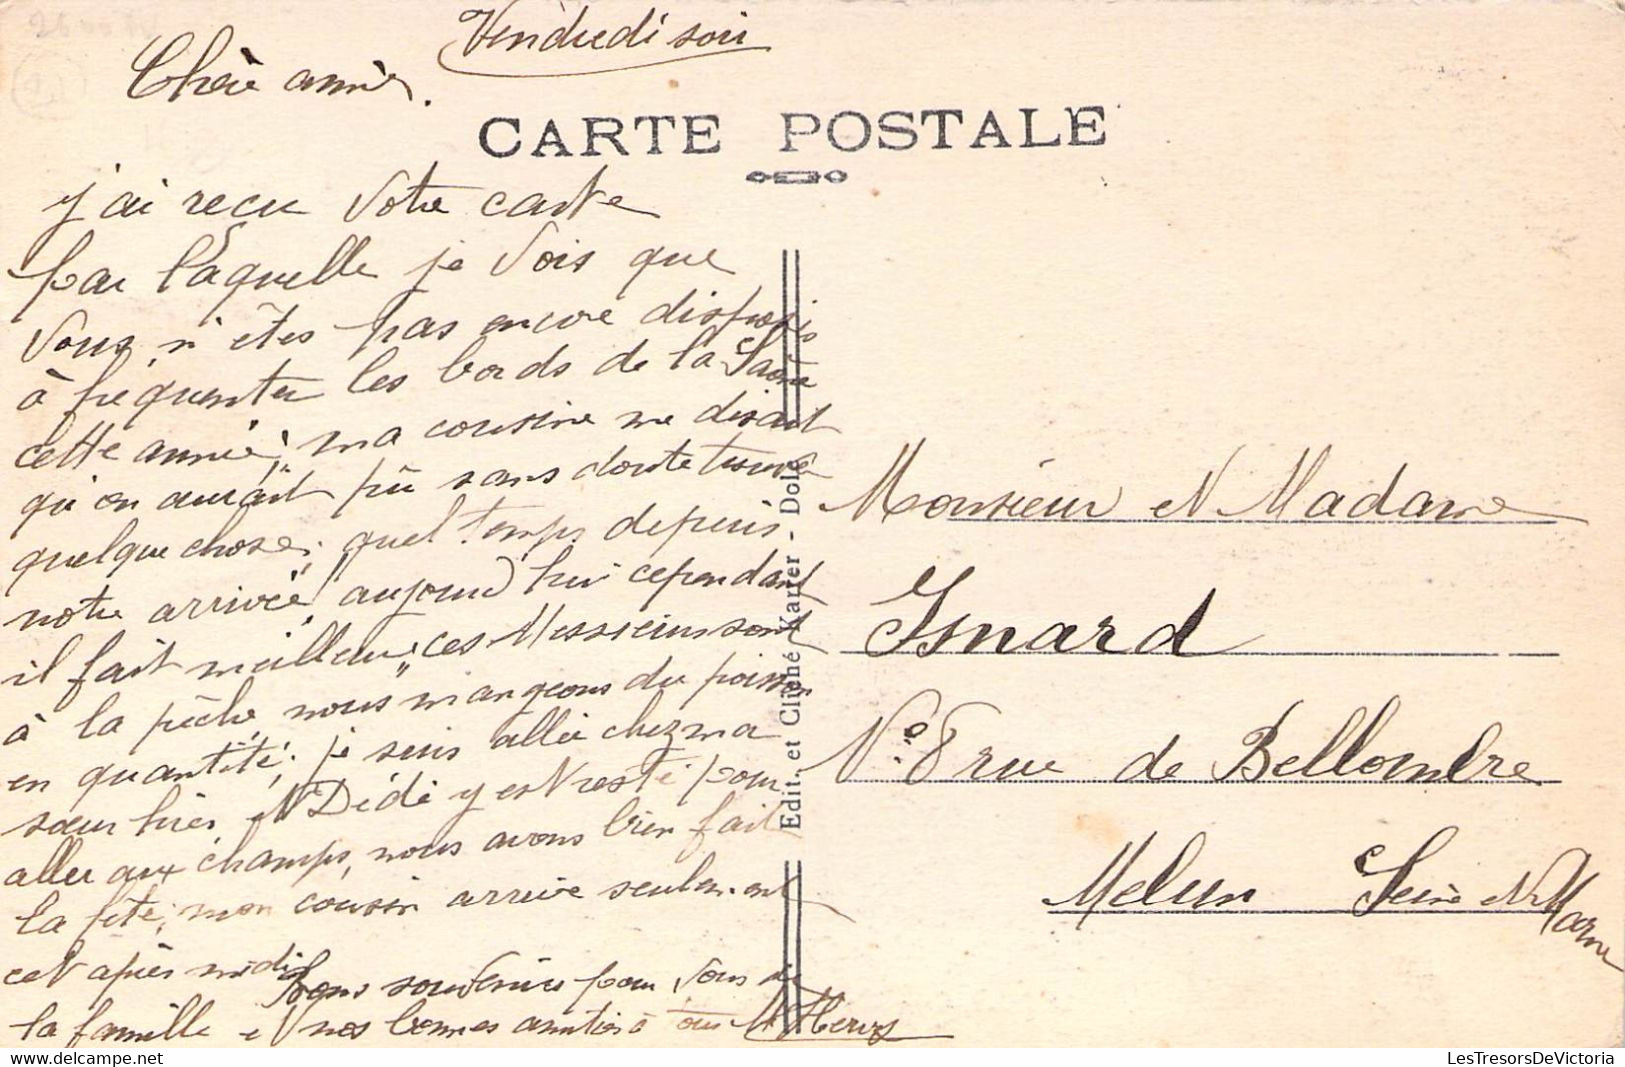 Vendredi soir
Chère amie.
CARTE POSTALE
j'ai reçu votre carte
par laquelle je vois que
vous n'êtes pas encore disposés
à fréquenter les bords de la Saône
cette année; ma cousine me disait
qu'on aurait pû sans doute trouvé
quelque chose; quel temps depuis
notre arrivée! aujourd'hui cependant
il fait meilleur; ces Messieurs sont
à la pêche, nous mangeons du poisson
en quantité; je suis allée chez ma
sœur hier et Dédé y est resté pour
aller aux champs, nous avons bien fait
la fête; mon cousin arrive seulement
cet après midi
Bons souvenirs pour vous de
la famille et nos bonnes amitiés à tous
Edit. et Cliché Karrer - Dole
Monsieur et Madame
Isnard
N° 8 rue de Bellombre
Melun Seine et Marne
LesTresorsDeVictoria.com